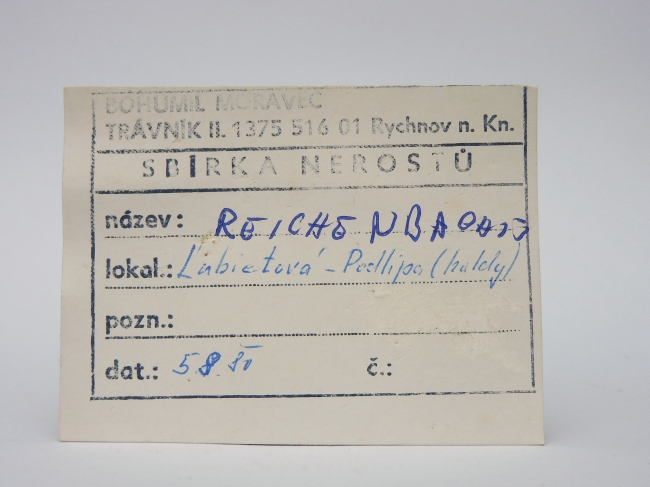 BOHUMIL MORAVEC
TRÁVNÍK II. 1375 516 01 Rychnov n. Kn.
SBÍRKA NEROSTŮ
název:
lokal.: Ľubietová - Podlipa (haldy)
pozn.:
dat.: 5 8
č.: